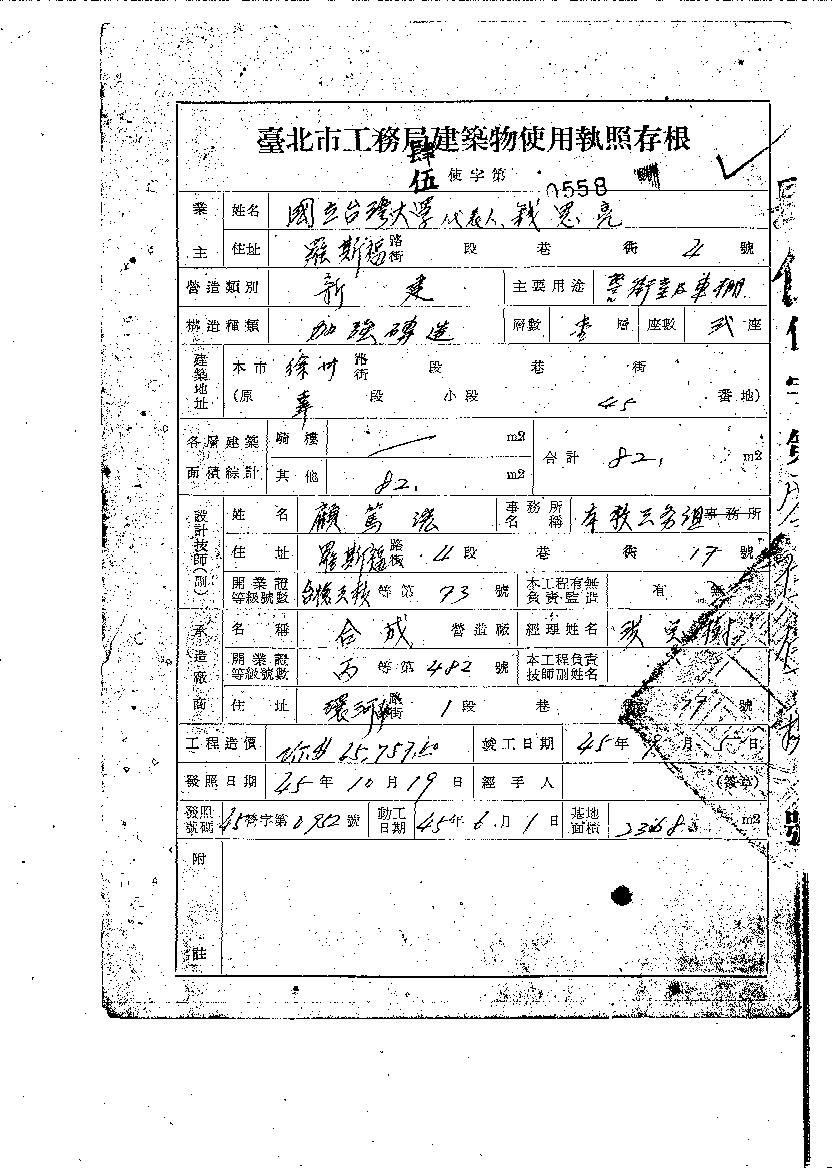 臺北市工務局建築物使用執照存根
肆伍 使字第 0558
業主 姓名 國立台灣大學 代表人 錢思亮
住址 羅斯福 路街 段 巷 街 4 號
營造類別 新建 主要用途 警衛室及車棚
構造種類 加強磚造 層數 壹 層 座數 弍 座
建築地址 本市 徐州 路街 段 巷 街
(原 段 小段 45 番地)
各層建築面積綜計 騎樓 m2 合計 82. m2
其他 82. m2
設計技師(副) 姓名 顧篤 事務所名稱 本教 組 事務所
住址 羅斯福 路街 4段 巷 街 17 號
開業證等級號數 等第 73 號 本工程有無負責監造 有 無
承造廠商 名稱 合成 營造廠 經理姓名
開業證等級號數 丙 等第 482 號 本工程負責技師副姓名
住址 環河 路街 1段 巷 號
工程造價 竣工日期 45年 月 5日
發照日期 45年10月19日 經手人 (簽章)
發照號碼 45營字第0952號 動工日期 45年6月1日 基地面積 m2
附註